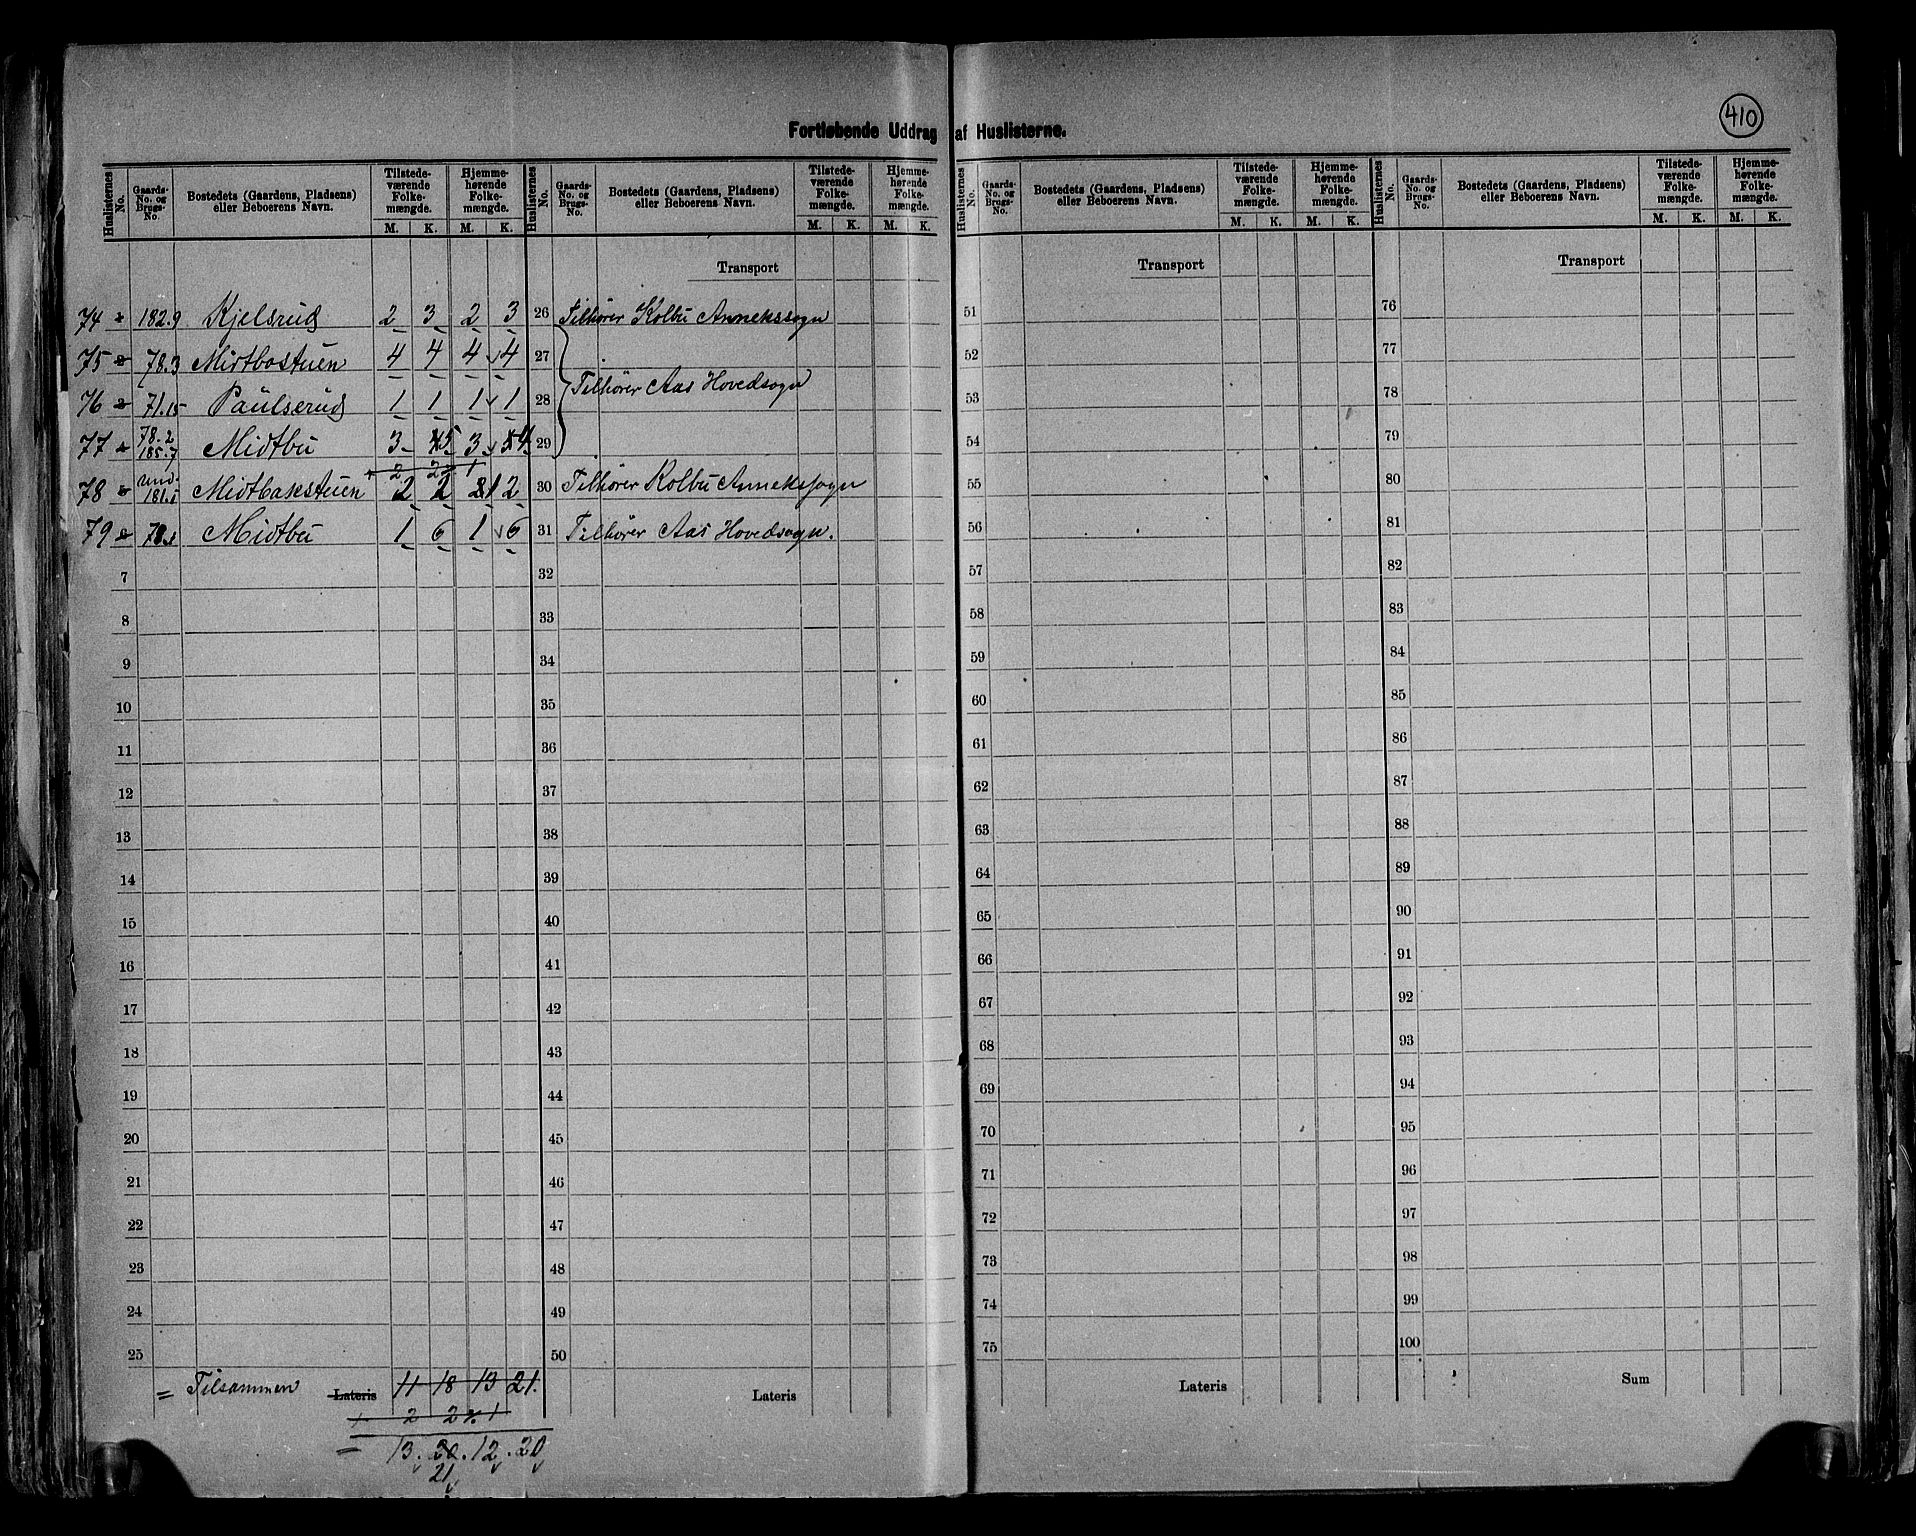 410
Fortløbende Uddrag af Huslisterne.
Huslisternes No. | Gaards-No. og Brugs-No. | Bostedets (Gaardens, Pladsens) eller Beboerens Navn. | Tilstedeværende Folkemængde. M. K. | Hjemmehørende Folkemængde. M. K. | Huslisternes No. | Gaards-No. og Brugs-No. | Bostedets (Gaardens, Pladsens) eller Beboerens Navn. | Tilstedeværende Folkemængde. M. K. | Hjemmehørende Folkemængde. M. K. | Huslisternes No. | Gaards-No. og Brugs-No. | Bostedets (Gaardens, Pladsens) eller Beboerens Navn. | Tilstedeværende Folkemængde. M. K. | Hjemmehørende Folkemængde. M. K. | Huslisternes No. | Gaards-No. og Brugs-No. | Bostedets (Gaardens, Pladsens) eller Beboerens Navn. | Tilstedeværende Folkemængde. M. K. | Hjemmehørende Folkemængde. M. K.
Transport Transport Transport
74 182.9 Kjelsrud 2 3 2 3 26 Tilhører Kolbu Annekssogn 51 76
75 78.3 Midtbostuen 4 4 4 4 27 52 77
76 71.15 Paulserud 1 1 1 1 28 Tilhører Aas Hovedsogn 53 78
77 78.2 185.7 Midtbu 3 5 3 4 29 54 79
+ 2 2 1
78 181.1 Midtbakstuen 2 2 1 2 30 Tilhører Kolbu Annekssogn 55 80
79 Midtbu 1 6 1 6 31 Tilhører Aas Hovedsogn. 56 81
7 32 57 82
8 33 58 83
9 34 59 84
10 35 60 85
11 36 61 86
12 37 62 87
13 38 63 88
14 39 64 89
15 40 65 90
16 41 66 91
17 42 67 92
18 43 68 93
19 44 69 94
20 45 70 95
21 46 71 96
22 47 72 97
23 48 73 98
24 49 74 99
25 50 75 100
= Tilsammen Lateris 11 18 13 21. Lateris Lateris Sum
+ 2 2 % 1
= 13. 20. 12. 20
21